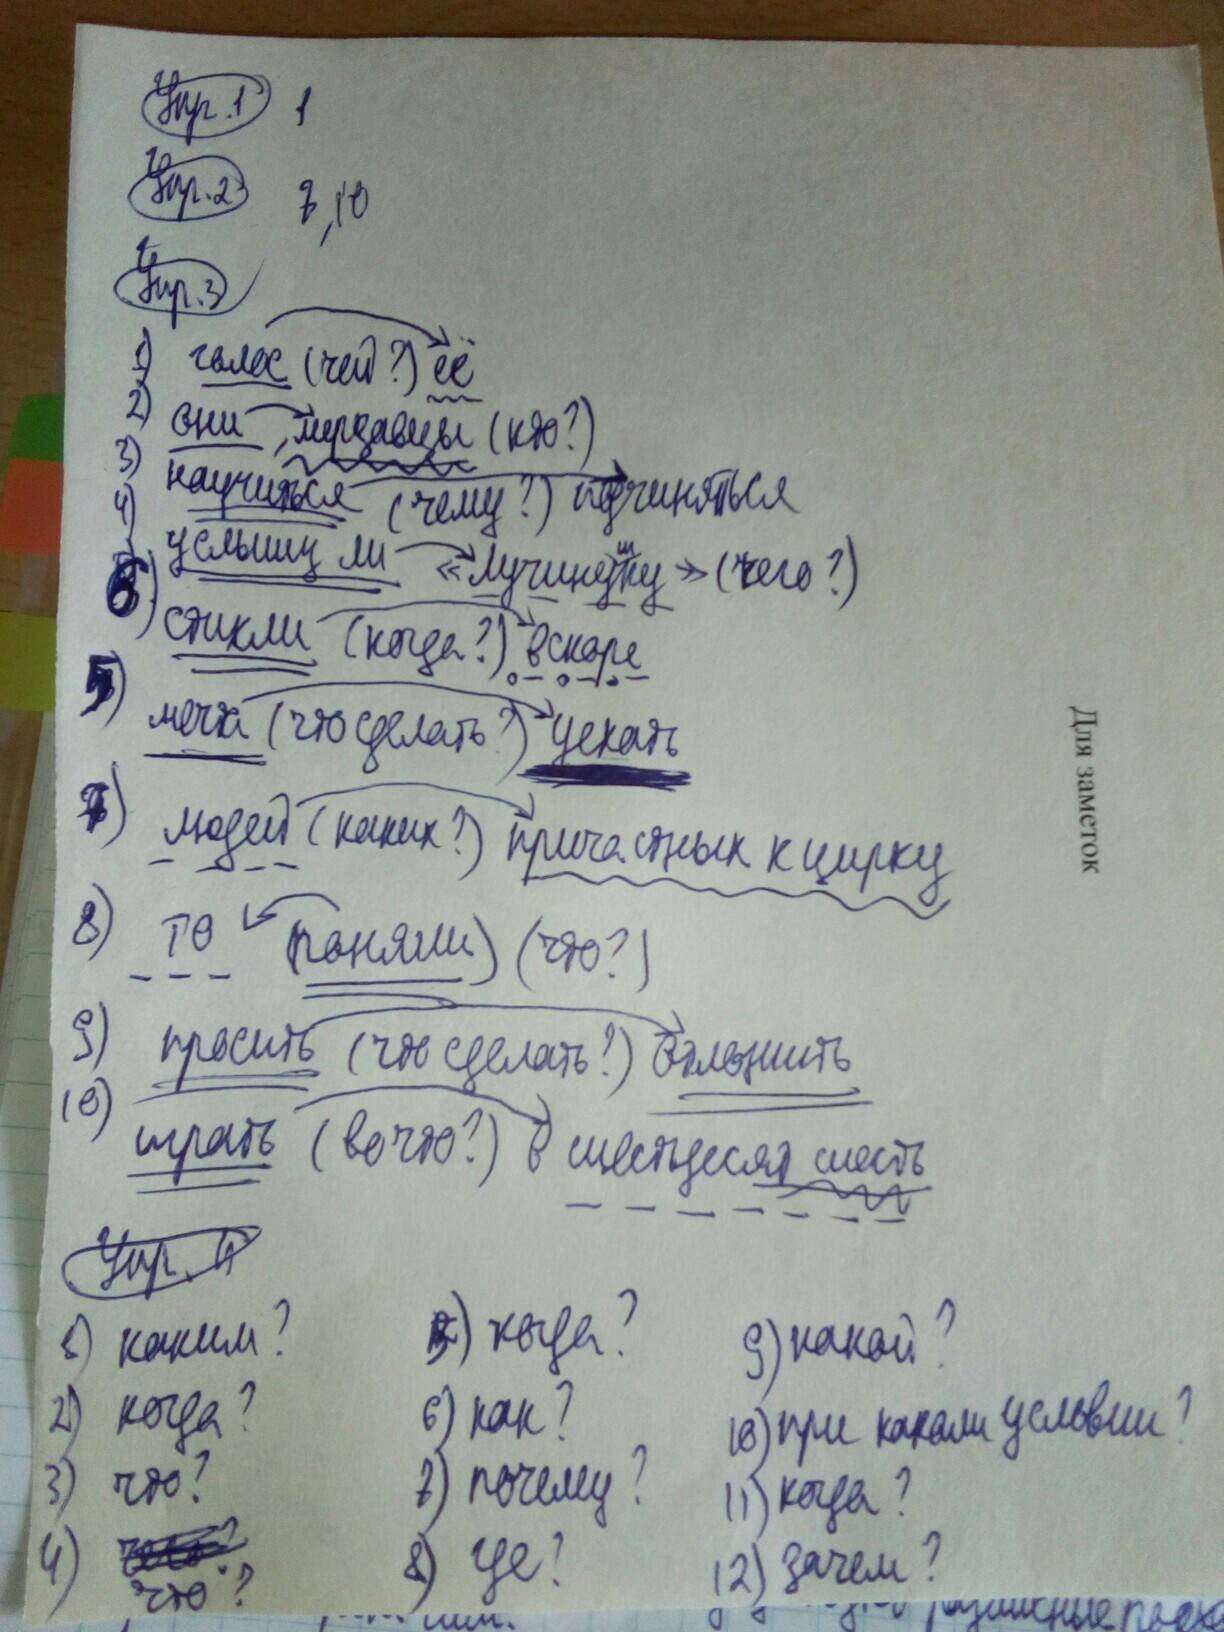 Упр.1 1
Упр.2 7,10
Упр.3
1) голос (чей?) её
2) они, мерзавцы (кто?)
3) научиться (чему?) подчиняться
4) услышу ли «Лучинушку» (чего?)
6) стихли (когда?) вскоре
5) мечта (что сделать?) уехать
7) людей (каких?) причастных к цирку
8) то (поняли) (что?)
9) просить (что сделать?) отложить
10) играть (во что?) в шестьдесят шесть
Упр. 4
1) каким? 5) когда? 9) какой?
2) когда? 6) как? 10) при каком условии?
3) что? 7) почему? 11) когда?
4) что? 8) где? 12) зачем?
Для заметок